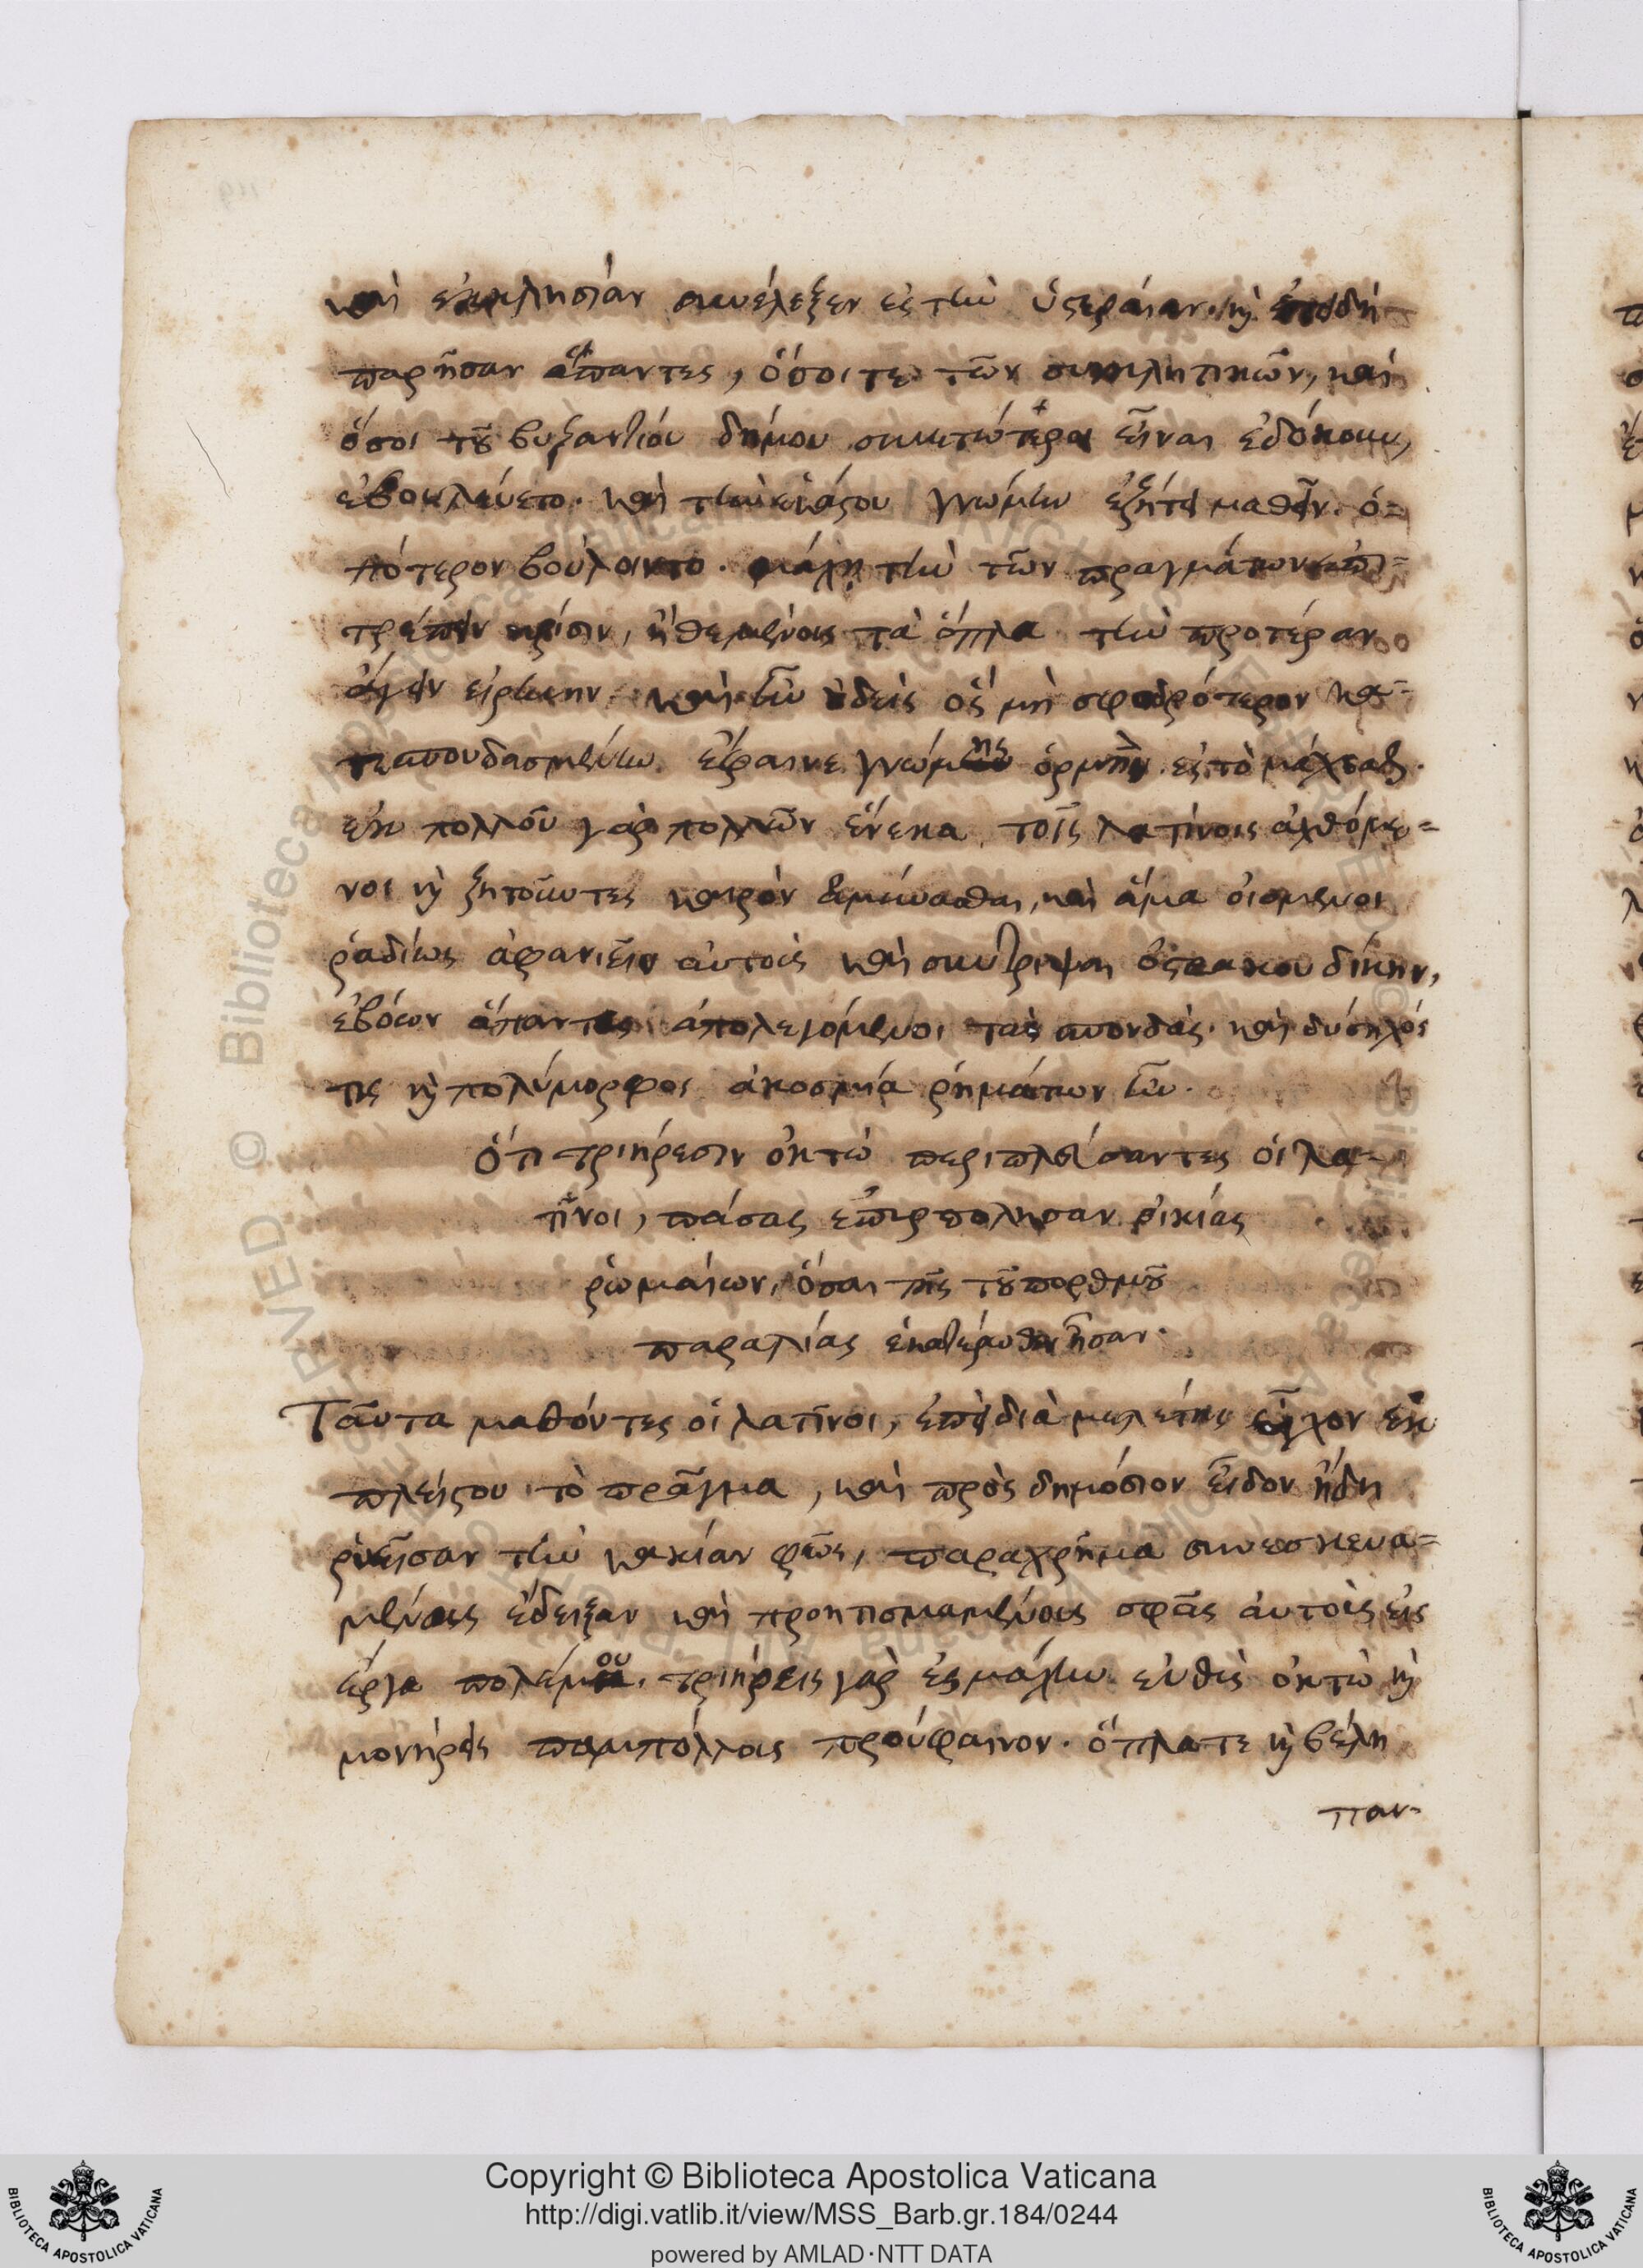 καὶ ἐκκλησίαν συνέλεξεν ἐς τὴν ὑστεραίαν. καὶ ἐπειδὴ
παρῆσαν ἅπαντες, ὅσοι τε τῶν συγκλητικῶν, καὶ
ὅσοι τοῦ βυζαντίου δήμου συνετώτεροι εἶναι ἐδόκουν,
ἐβουλεύετο. καὶ τὴν ἑκάστου γνώμην ἐζήτει μαθεῖν. ὁ=
πότερον βούλοιντο. μάχῃ τὴν τῶν πραγμάτων ἐπι=
τρέπειν κρίσιν, ἢ θεμένους τὰ ὅπλα τὴν προτέραν
ἄγειν εἰρήνην. καὶ ἦν οὐδεὶς ὃς μὴ σφοδρότερον κα=
τεσπουδασμένην ἔφαινε γνώμης ὁρμὴν ἐς τὸ μάχεσθαι.
ἐκ πολλοῦ γὰρ πολλῶν ἕνεκα τοῖς λατίνοις ἀχθόμε=
νοι καὶ ζητοῦντες καιρὸν ἀμύνασθαι, καὶ ἅμα οἰόμενοι
ῥαδίως ἀφανιεῖν αὐτοὺς καὶ συντρίψαι ὀστράκου δίκην,
ἐβόων ἅπαντες ἀπολεγόμενοι τὰς σπονδάς. καὶ δύσηχός
τις καὶ πολύμορφος ἀκοσμία ῥημάτων ἦν.
Ὅτι τριήρεσιν ὀκτὼ περιπλεύσαντες οἱ λα=
τῖνοι, πάσας ἐπυρπόλησαν οἰκίας
ῥωμαίων, ὅσαι τῆς τοῦ πορθμοῦ
παραλίας ἑκατέρωθεν ἦσαν.
Ταῦτα μαθόντες οἱ λατῖνοι, ἐπεὶ διὰ μελέτης εἶχον ἐκ
πλείστου τὸ πρᾶγμα, καὶ πρὸς δημόσιον εἶδον ἤδη
ῥυεῖσαν τὴν κακίαν φῶς, παραχρῆμα συνεσκευα=
μένους ἔδειξαν καὶ προητοιμασμένους σφᾶς αὐτοὺς εἰς
ἔργα πολέμου. τριήρεις γὰρ ἐς μάχην εὐθὺς ὀκτὼ καὶ
μονήρεις παμπόλλους προύφαινον. ὅπλα τε καὶ βέλη
παν-
Copyright © Biblioteca Apostolica Vaticana
http://digi.vatlib.it/view/MSS_Barb.gr.184/0244
powered by AMLAD·NTT DATA